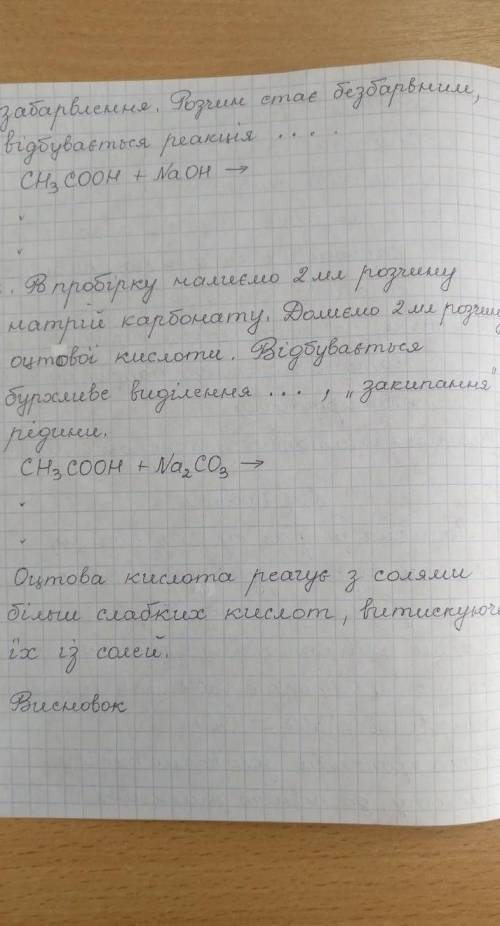 забарвлення. Розчин стає безбарвним,
відбувається реакція ....
CH₃COOH + NaOH →
. В пробірку налиємо 2 мл розчину
натрій карбонату. Долиємо 2 мл розчин
оцтової кислоти. Відбувається
бурхливе виділення ..., „закипання"
рідини.
CH₃COOH + Na₂CO₃ →
Оцтова кислота реагує з солями
більш слабких кислот, витискуюч
їх із солей.
Висновок